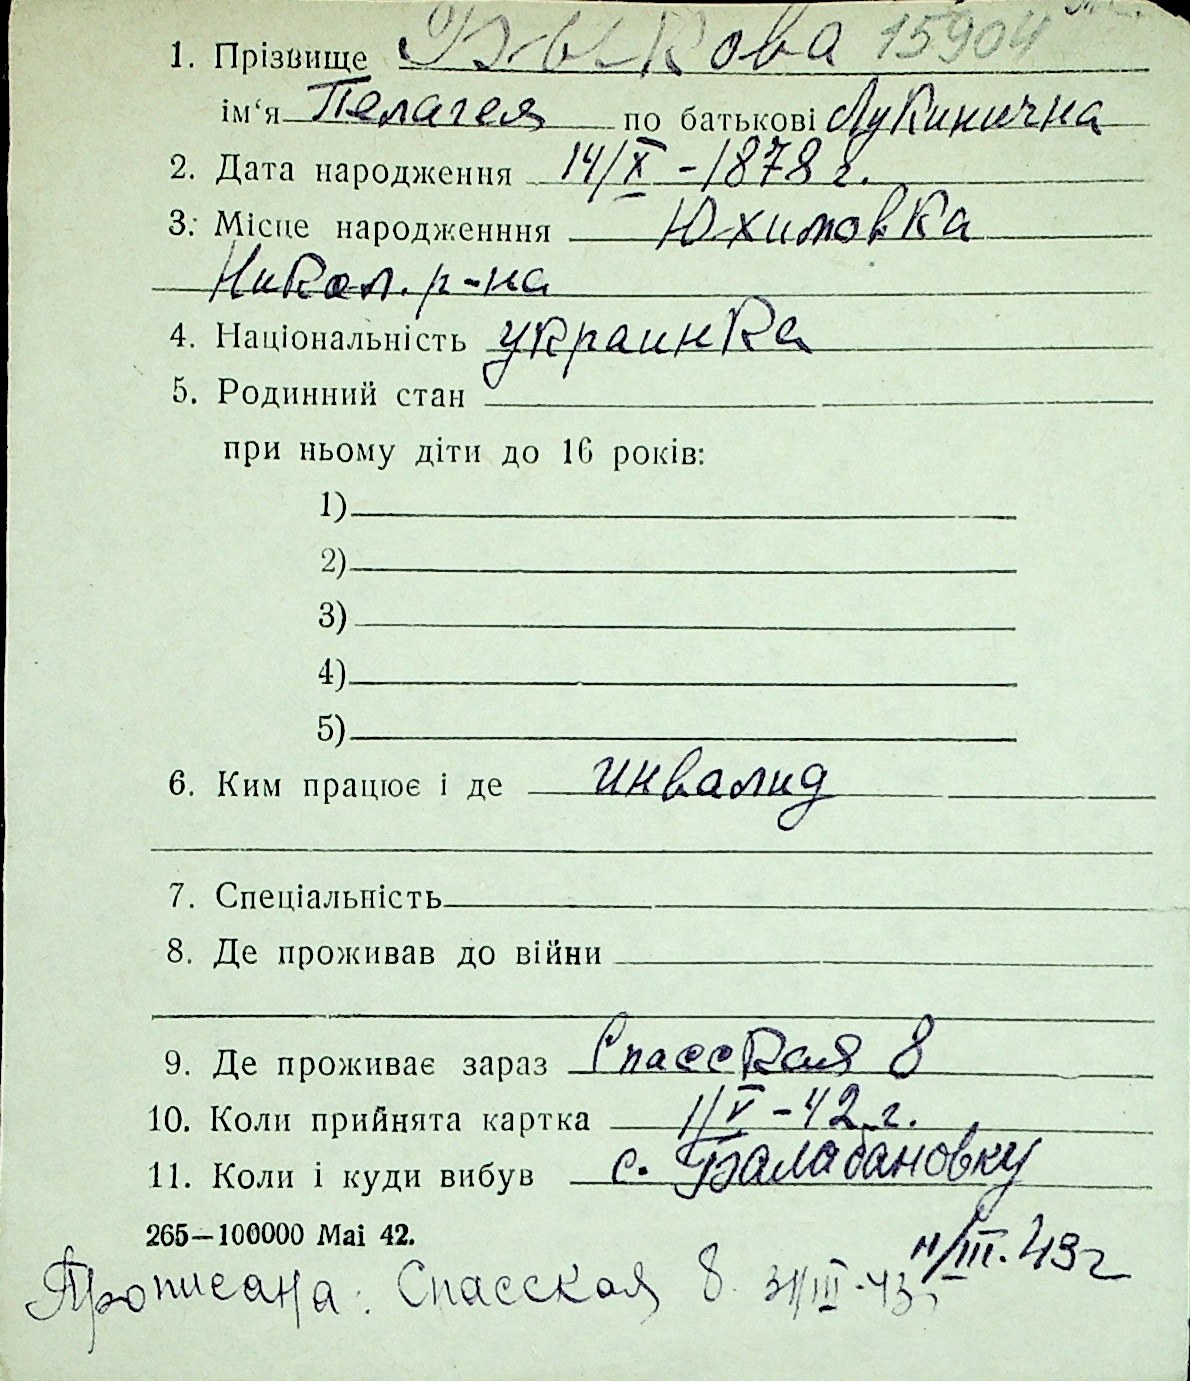 1. Прізвище Быкова 15904
ім‘я Пелагея по батькові Лукинична
2. Дата народження 14/X -1878 г.
3. Місце народженння Юхимовка
Никол. р-на
4. Національність украинка
5. Родинний стан
при ньому діти до 16 років:
1)
2)
3)
4)
5)
6. Ким працює і де инвалид
7. Спеціальність
8. Де проживав до війни
9. Де проживає зараз Спасская 8
10. Коли прийнята картка 1/V -42 г.
11. Коли і куди вибув с. Балабановку
265—100000 Mai 42.
/III. 43 г
Прописана: Спасская 8. 31/III-43